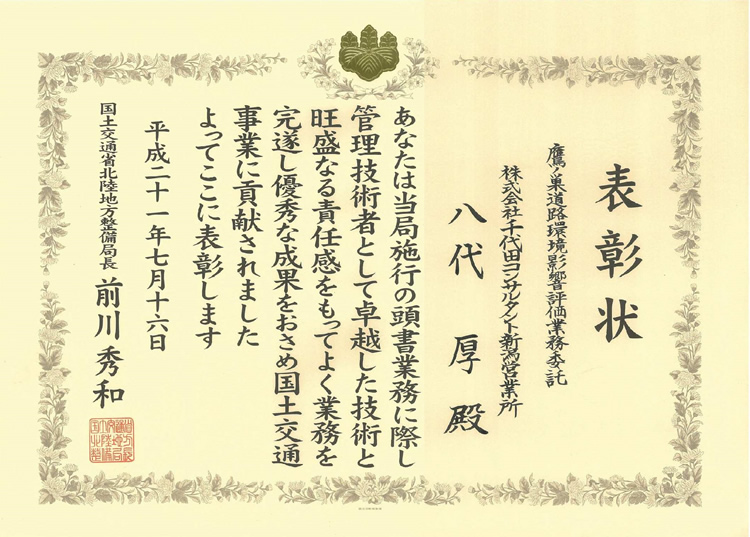 表彰状
鷹ノ巣道路環境影響評価業務委託
株式会社千代田コンサルタント新潟営業所
八代 厚 殿
あなたは当局施行の頭書業務に際し
管理技術者として卓越した技術と
旺盛なる責任感をもってよく業務を
完遂し優秀な成果をおさめ国土交通
事業に貢献されました
よってここに表彰します
平成二十一年七月十六日
国土交通省北陸地方整備局長 前川秀和